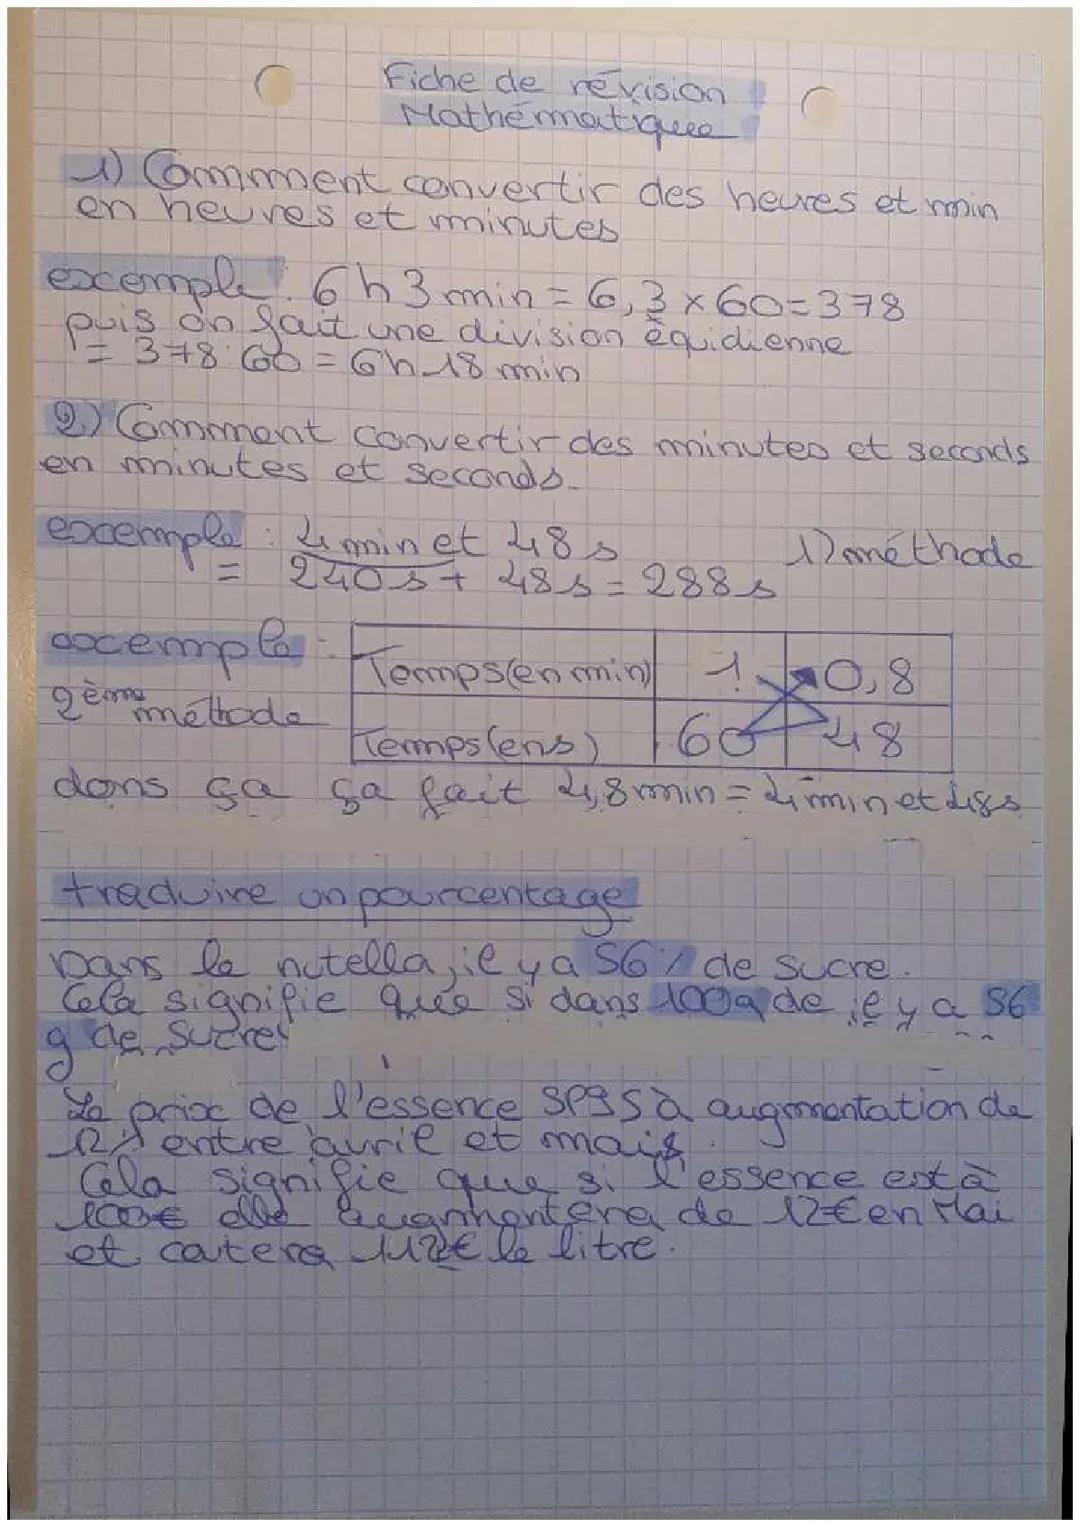 Fiche de révision
Mathématique
1) Comment convertir des heures et min
en heures et minutes
excemple : 6h3min = 6,3 × 60 = 378
puis on fait une division équidienne
= 378 : 60 = 6h 18 min
2) Comment convertir des minutes et seconds
en minutes et seconds.
excemple : 4 min et 48 s 1) méthode
= 240 s + 48 s = 288 s
excemple :
2ème méthode
Temps (en min) 1 0,8
Temps (en s) 60 48
dons ça ça fait 4,8 min = 4 min et 48s
traduire un pourcentage
Dans le nutella, il y a 56% de sucre.
Cela signifie que si dans 100g de il y a 56
g de sucre
Le prix de l'essence SP95 à augmentation de
12% entre avril et mais.
Cela signifie que si l'essence est à
100€ elle augmentera de 12€ en Mai
et catera 112€ le litre.